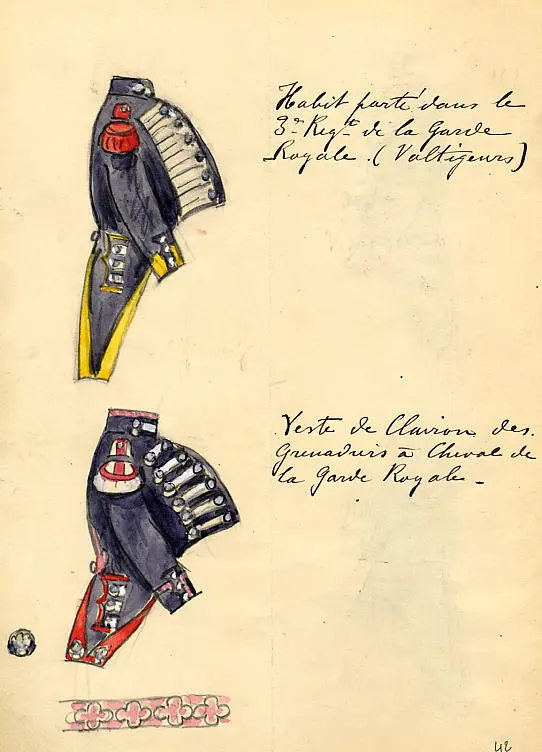 Habit porté dans le
3e Regt de la Garde
Royale. (Voltigeurs)
Veste de Clairon des
Grenadiers à Cheval de
la Garde Royale -
42